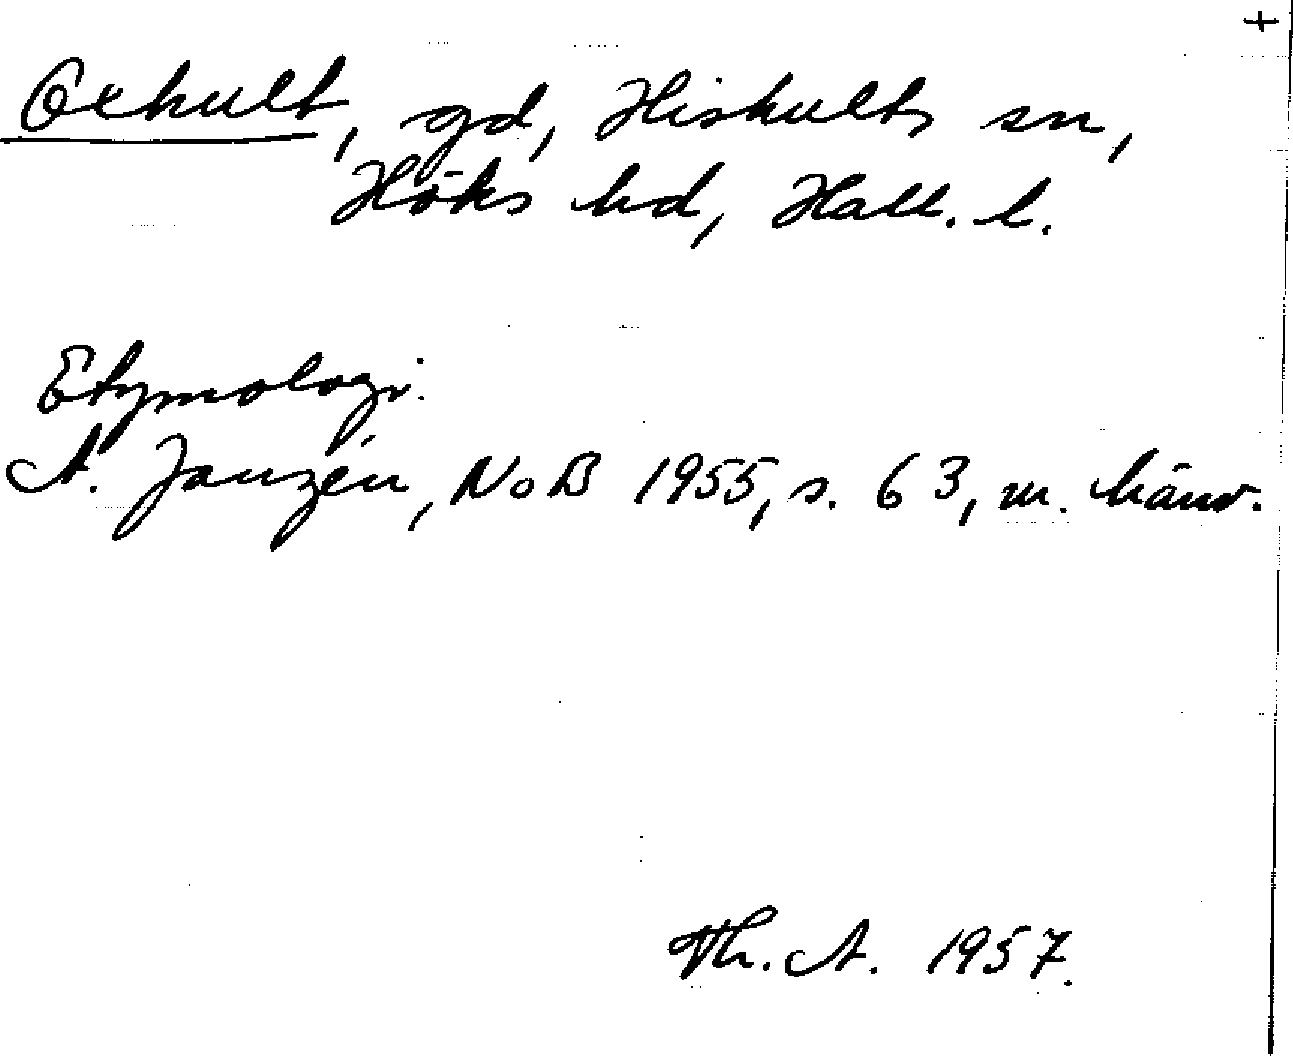 +
Oxhult, gd, Hishults sn,
Höks hd, Hall. l.
Etymologi:
A. Janzén, NoB 1955, s. 63, m. hänv.
Th. A. 1957.